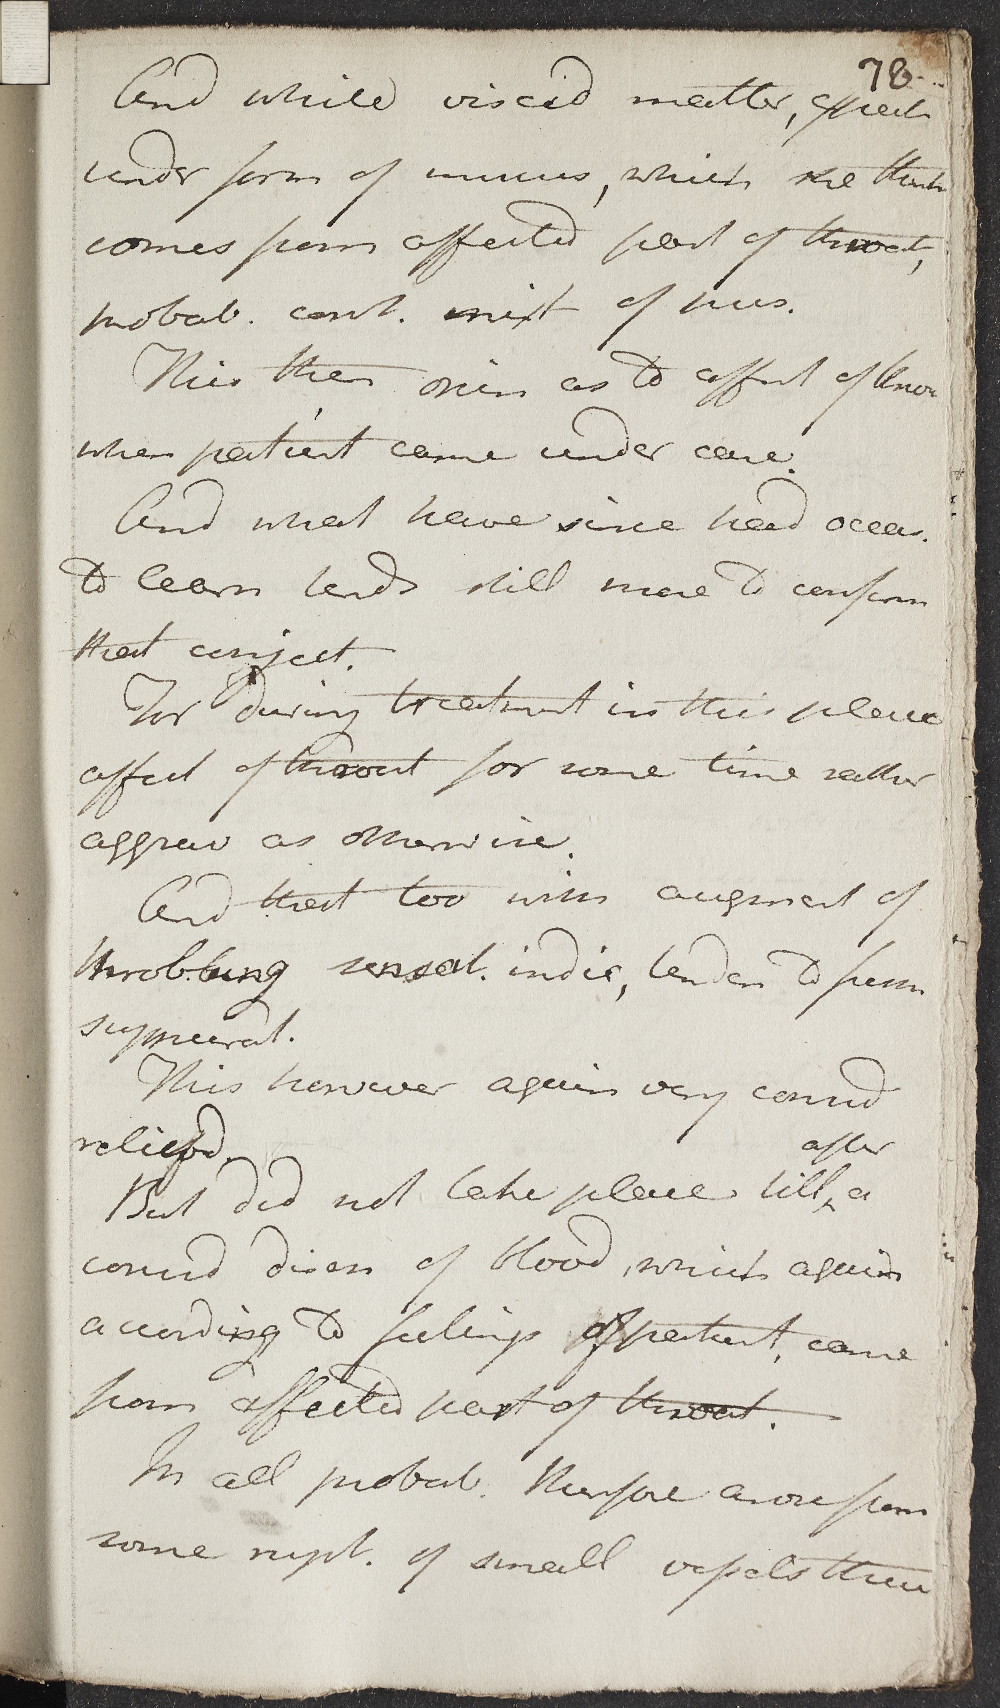 78
And while viscid matter, speck
under form of mucus, which she think
comes from affected part of throat,
probab. cont. mixt of pus.
This then opin as to affect of throa
when patient came under care.
And what have since had occas.
to learn tends still more to confirm
that conject.
For during treatment in this place
affect of throat for some time rather
aggrav as otherwise.
And that too with augment of
throbbing sensat. indic, tenden to form
suppurat.
This however again very consid
reliefed.
But did not take place till after a
consid disch of blood, which again
according to feelings of patient, came
from affected part of throat.
In all probab. therefore arose from
some rupt. of small vessels there